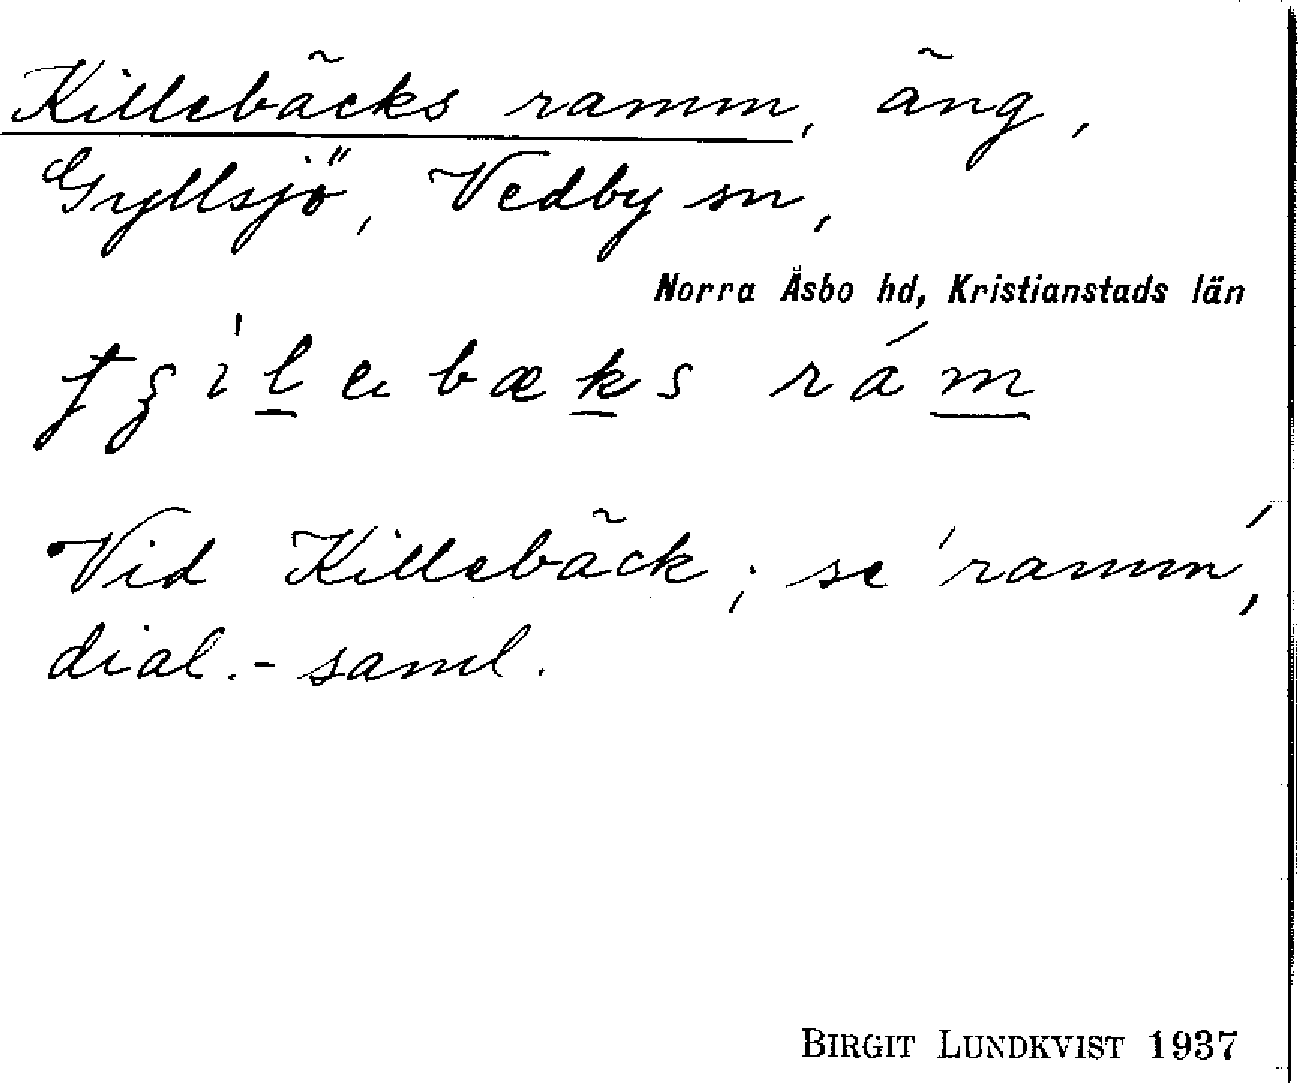 Killebäcks ramm, äng,
Gyllsjö, Vedby sn,
Norra Åsbo hd, Kristianstads län
Vid Killebäck; se 'ramm',
dial.-saml.
BIRGIT LUNDKVIST 1937